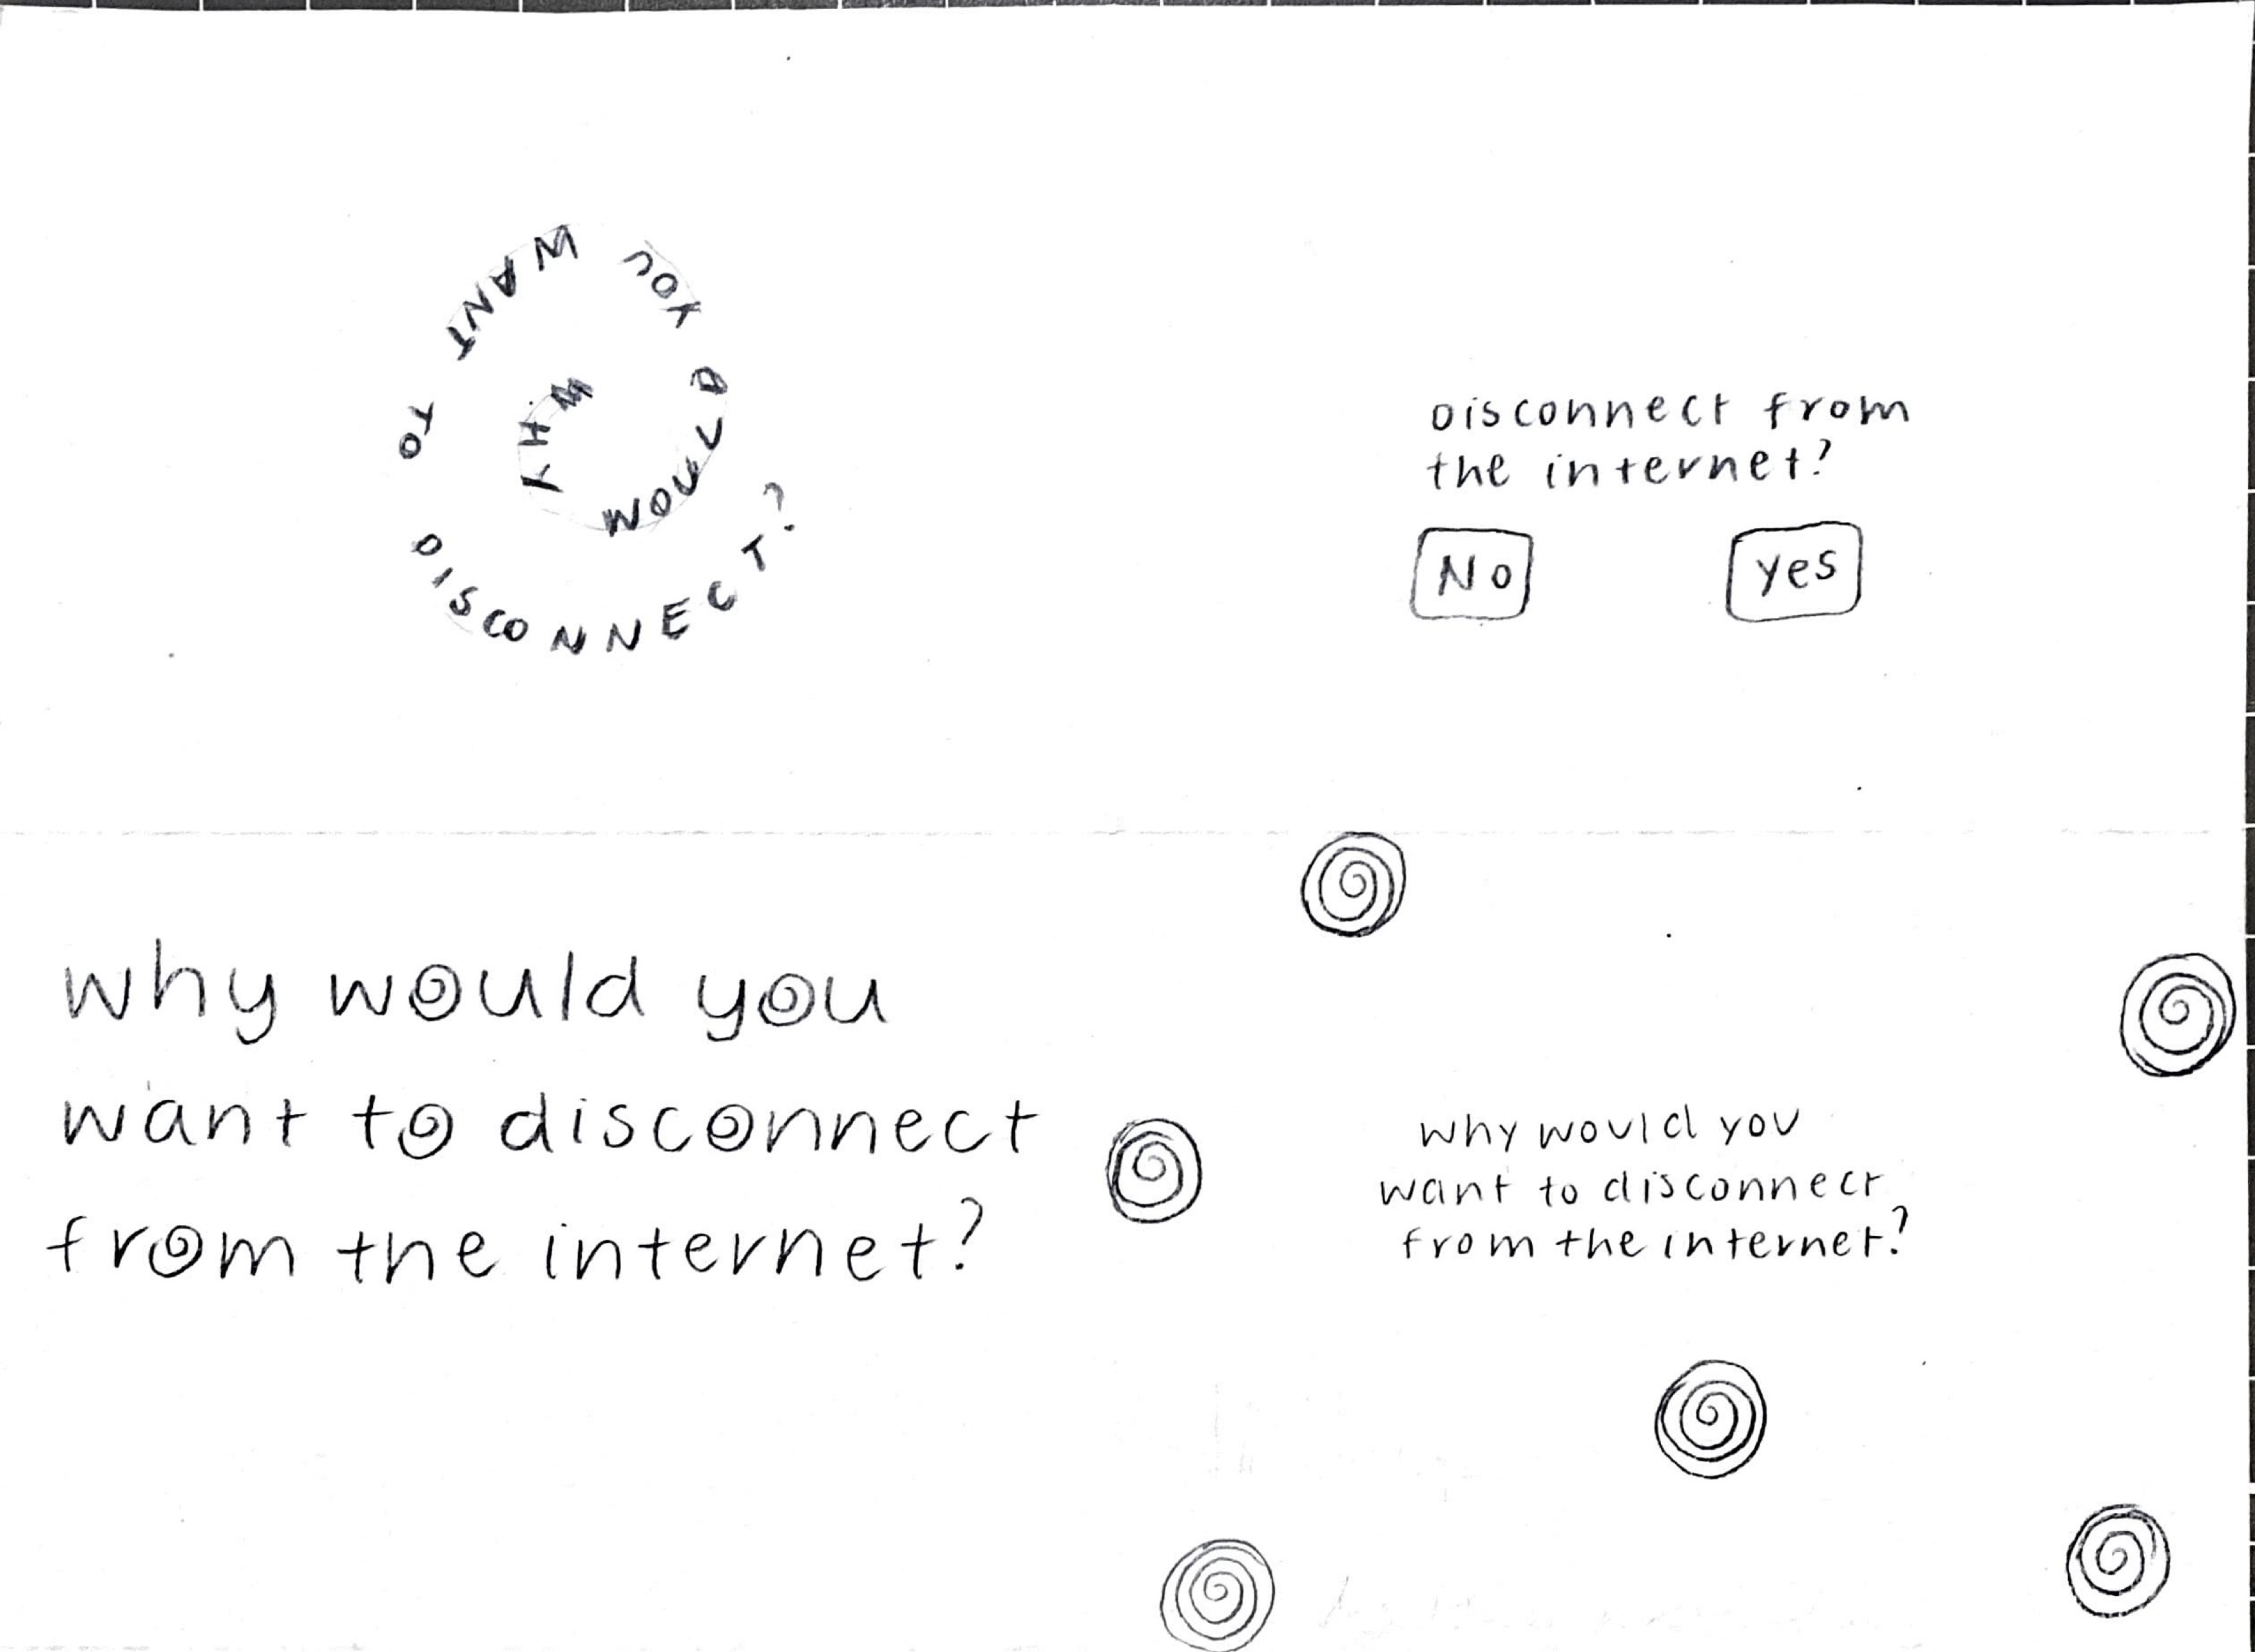 WHY WOULD YOU WANT TO DISCONNECT?
Disconnect from
the internet?
No
Yes
why would you
want to disconnect
from the internet?
why would you
want to disconnect
from the internet?